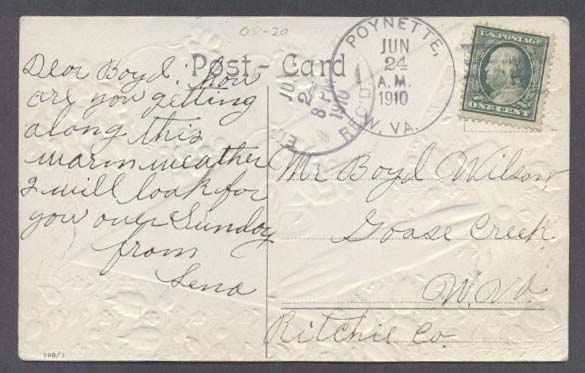 08-20
Post - Card
Dear Boyd: How
are you getting
along this
warm weather
I will look for
you over Sunday
from
Lena
POYNETTE,
JUN
24
A.M.
1910
W. VA.
REC'D.
1910
U.S. POSTAGE
ONE CENT
Mr Boyd Wilson
Goose Creek
W. Va.
Ritchie Co.